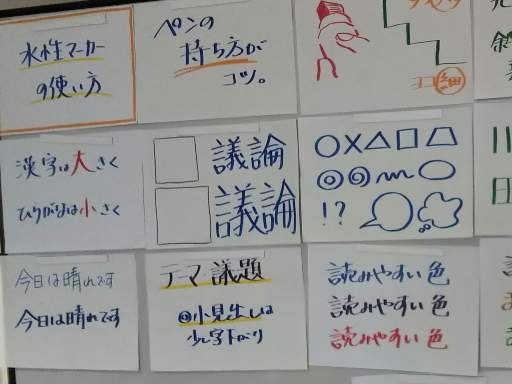 水性マーカー
の使い方
ペンの
持ち方が
コツ。
ヨコ細
漢字は大きく
ひらがなは小さく
議論
議論
!?
今日は晴れです
今日は晴れです
テーマ 議題
小見出しは
少し字下がり
読みやすい色
読みやすい色
読みやすい色